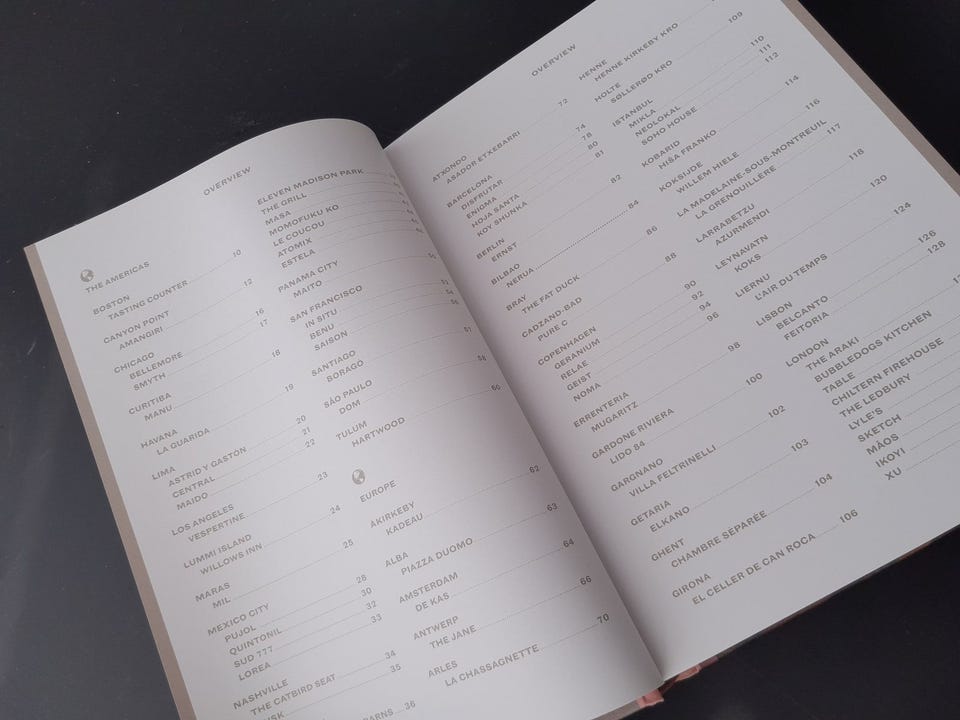 OVERVIEW
THE AMERICAS
BOSTON
TASTING COUNTER 10
CANYON POINT
AMANGIRI 12
CHICAGO
BELLEMORE 16
SMYTH 17
CURITIBA
MANU 18
HAVANA
LA GUARIDA 19
LIMA
ASTRID Y GASTON 20
CENTRAL 21
MAIDO 22
LOS ANGELES
VESPERTINE 23
LUMMI ISLAND
WILLOWS INN 24
MARAS
MIL 25
MEXICO CITY
PUJOL 28
QUINTONIL 30
SUD 777 32
LOREA 33
NASHVILLE
THE CATBIRD SEAT 34
35
BARNS 36
ELEVEN MADISON PARK
THE GRILL
MASA
MOMOFUKU KO
LE COUCOU
ATOMIX
ESTELA
PANAMA CITY
MAITO
SAN FRANCISCO
IN SITU 53
BENU 54
SAISON 56
SANTIAGO
BORAGÓ
SÃO PAULO
DOM 58
TULUM
HARTWOOD 60
EUROPE
AKIRKEBY
KADEAU 62
ALBA
PIAZZA DUOMO 63
AMSTERDAM
DE KAS 64
ANTWERP
THE JANE 66
ARLES
LA CHASSAGNETTE 70
OVERVIEW
ATXONDO
ASADOR ETXEBARRI 72
BARCELONA
DISFRUTAR 74
ENIGMA 78
HOJA SANTA 80
KOY SHUNKA 81
BERLIN
ERNST 82
BILBAO
NERUA 84
BRAY
THE FAT DUCK 86
CADZAND-BAD
PURE C 88
COPENHAGEN
GERANIUM 90
RELAE 92
GEIST 94
NOMA 96
ERRENTERIA
MUGARITZ 98
GARDONE RIVIERA
LIDO 84 100
GARGNANO
VILLA FELTRINELLI 102
GETARIA
ELKANO 103
GHENT
CHAMBRE SÉPARÉE 104
GIRONA
EL CELLER DE CAN ROCA 106
HENNE
HENNE KIRKEBY KRO
HOLTE
SØLLERØD KRO 109
ISTANBUL
MIKLA 110
NEOLOKAL 111
SOHO HOUSE 112
KOBARID
HIŠA FRANKO 114
KOKSIJDE
WILLEM HIELE 116
LA MADELAINE-SOUS-MONTREUIL
LA GRENOUILLÈRE 117
LARRABETZU
AZURMENDI 118
LEYNAVATN
KOKS 120
LIERNU
L'AIR DU TEMPS 124
LISBON
BELCANTO 126
FEITORIA 128
LONDON
THE ARAKI
BUBBLEDOGS KITCHEN
TABLE
CHILTERN FIREHOUSE
THE LEDBURY
LYLE'S
SKETCH
MÃOS
IKOYI
XU